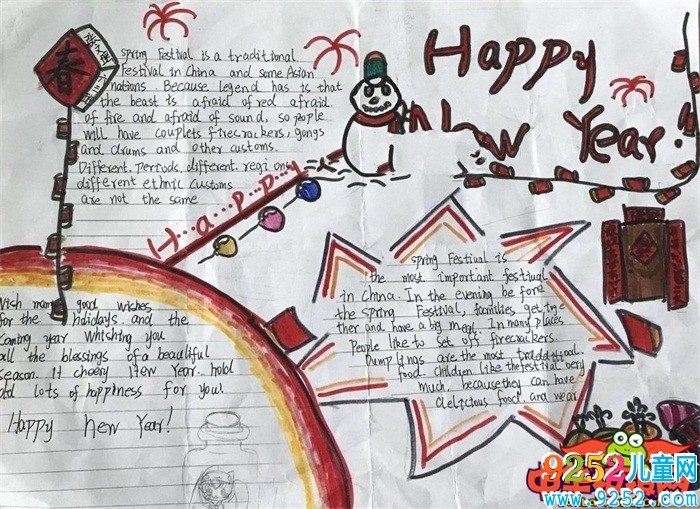 Happy
New Year.
春
Spring Festival is a traditional
festival in China and some Asian
nations. Because legend has is that
the beast is afraid of red afraid
of fire and afraid of sound, so people
will have couplets firecrackers, gongs
and drums and other customs.
Different. periods, different. regions
different ethnic customs
are not the same
H...a...p...p...y
Spring Festival is
the most important festival
in China. In the evening be fore
the Spring Festival, families get toge
ther and have a big meal. In many places
People like to set off firecrackers.
Dumplings are the most traddtioal.
food. Children like the festival very
much, because they can have
delicious food. and wear
Wish many good wishes
for the holidays. and the
Coming year Whishing you
all the blessings of a beautiful
season. It cheery New Year. hold
hold lots of happiness for you!
Happy New Year!
9252儿童网
www.9252.com